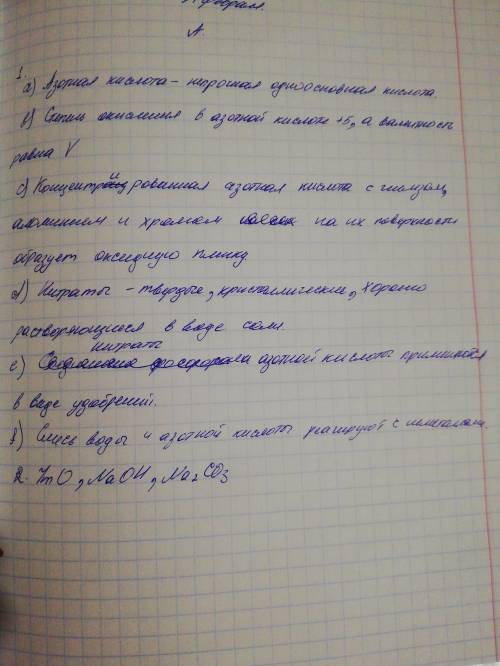 А.
1. a) Азотная кислота – непрочная одноосновная кислота.
b) Степень окисления в азотной кислоте +5, а валентность
равна V
c) Концентрированная азотная кислота с
алюминием и хромом на их поверхности
образует оксидную пленку.
d) Нитраты – твердые, кристаллические, хорошо
растворяющиеся в воде соли.
нитраты
e) азотной кислоты применяются
в виде удобрений.
f) Смесь воды и азотной кислоты реагируют с металлами.
2. ZnO, NaOH, Na2CO3